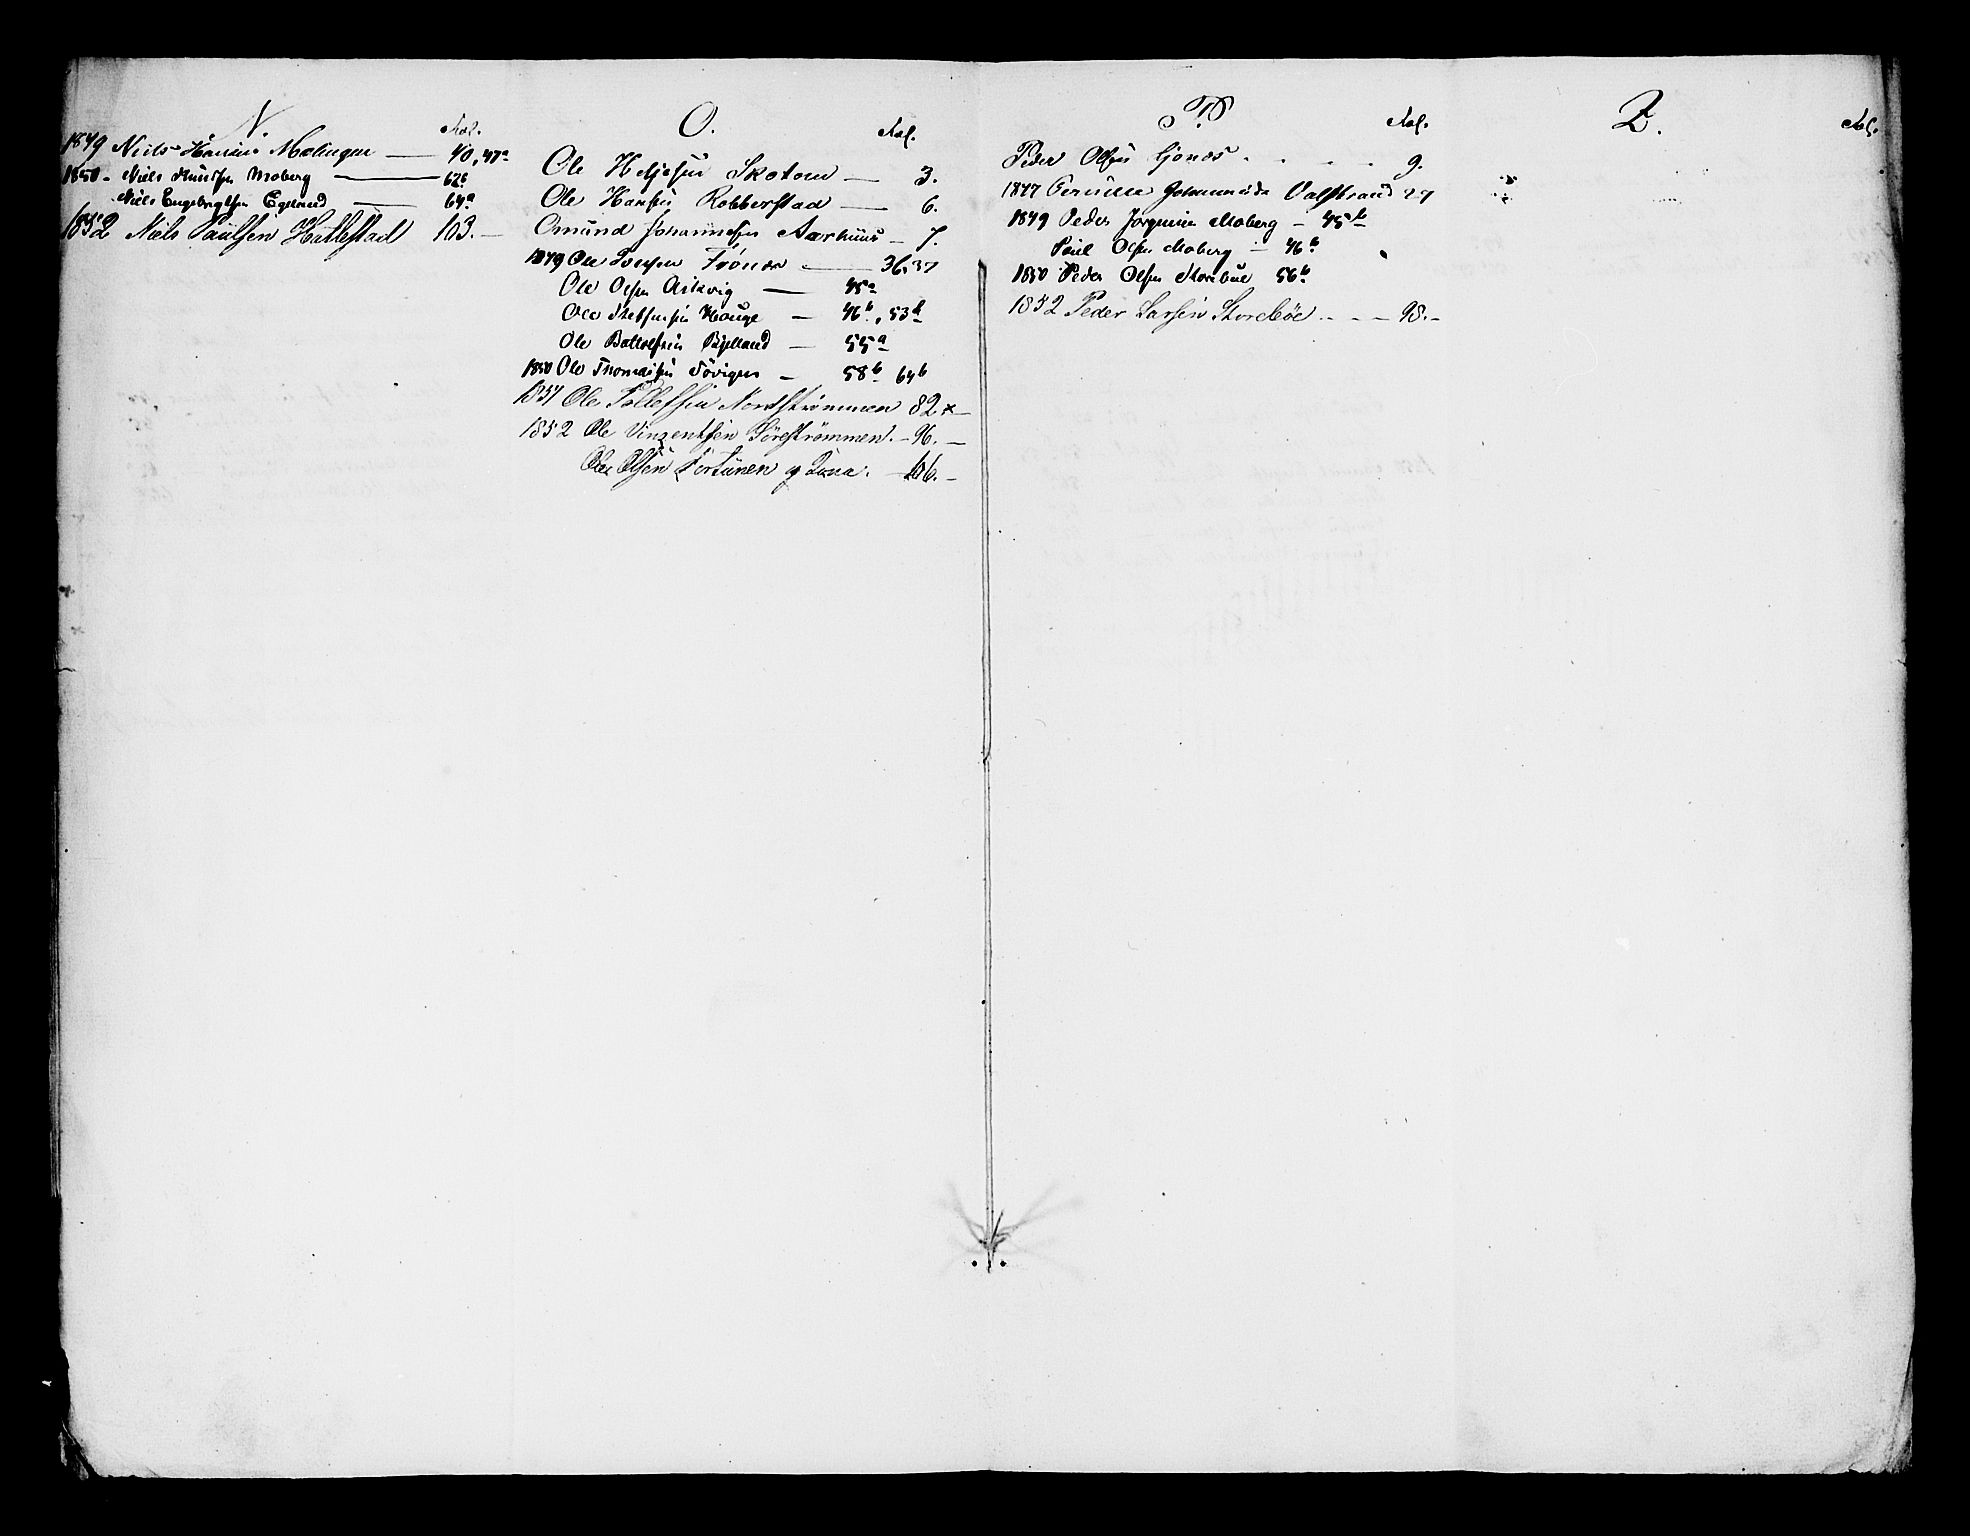 N
Fol.
1849 Niels Hansen Malingen — 40, 47a
1850 - Niels Knudsen Moberg — 62b
Niels Engebregtsen Egeland — 64a
1852 Niels Paulsen Hatlestad 103. —
O.
Fol.
Ole Heljesen Skotom — 3.
Ole Hansen Robberstad — 6.
Omund Johannesen Aarhuus — 7.
1849 Ole Frønes — 36, 37
Ole Olsen Askvig — 45a
Ole Hauge — 46b, 53b
Ole Bjelland — 55a
1850 Ole Thomassen Søvigen — 58b 64b
1851 Ole Tollefsen Nordstrømmen 82. —
1852 Ole Vinzentsen Sørestrømmen. — 96. —
Ole Olsen Fortunen og — 106. —
P.
Fol.
Peder Olsen Gjønes . . . . 9.
1847 Pernille Johannesda Valstrand 27
1849 Peder Jørgensen Moberg — 45b
Poul Olsen Moberg — 46b
1850 Peder Olsen Storebøe 56b
1852 Peder Larsen Storebøe . — — — 98. —
Q.
Fol.